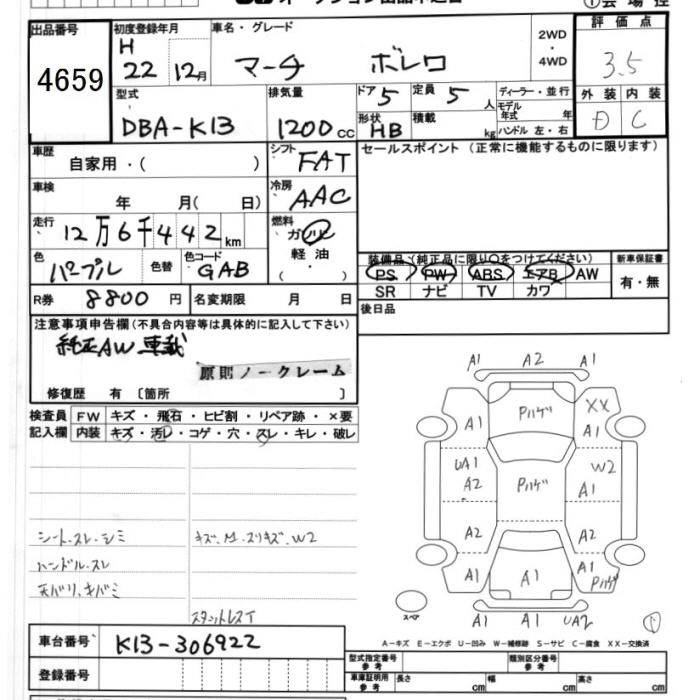 出品番号
4659
初度登録年月
H
22 12月
車名・グレード
マーチ ボレロ
2WD
・
4WD
評価点
3.5
型式
DBA-K13
排気量
1200cc
ドア
5
定員
5人
形状
HB
積載
kg
ディーラー・並行
モデル
年式 年
ハンドル 左・右
外装 内装
D C
車歴
自家用・( )
シフト
FAT
セールスポイント(正常に機能するものに限ります)
車検
年 月( 日)
冷房
AAC
走行
12万6千442km
燃料
ガソリン
軽油
( ・ )
色
パープル
色替
色コード
GAB
装備品(純正品に限り○をつけてください)
PS PW ABS エアB AW
SR ナビ TV カワ
新車保証書
有・無
R券 8800円
名変期限 月 日
後日品
注意事項申告欄(不具合内容等は具体的に記入して下さい)
純正AW車載
原則ノークレーム
修復歴 有 〔箇所 〕
検査員
記入欄
FW キズ・飛石・ヒビ割・リペア跡・×要
内装 キズ・汚レ・コゲ・穴・スレ・キレ・破レ
シートスレ・シミ
ハンドルスレ
天バリ、キバミ
キズ、M、スリキズ、W2
スタットレスT
A1 A2 A1
A1 Pハゲ XX
A1
UA1
A2 Pハゲ W2
A1
A2 A2
A1 A1 A1
Pハゲ
スペア
A1 A1 UA2
A-キズ E-エクボ U-凹み W-補修跡 S-サビ C-腐食 XX-交換済
車台番号 K13-306922
登録番号
型式指定番号
参考
類別区分番号
参考
車庫証明用
参考
長さ cm 幅 cm 高さ cm